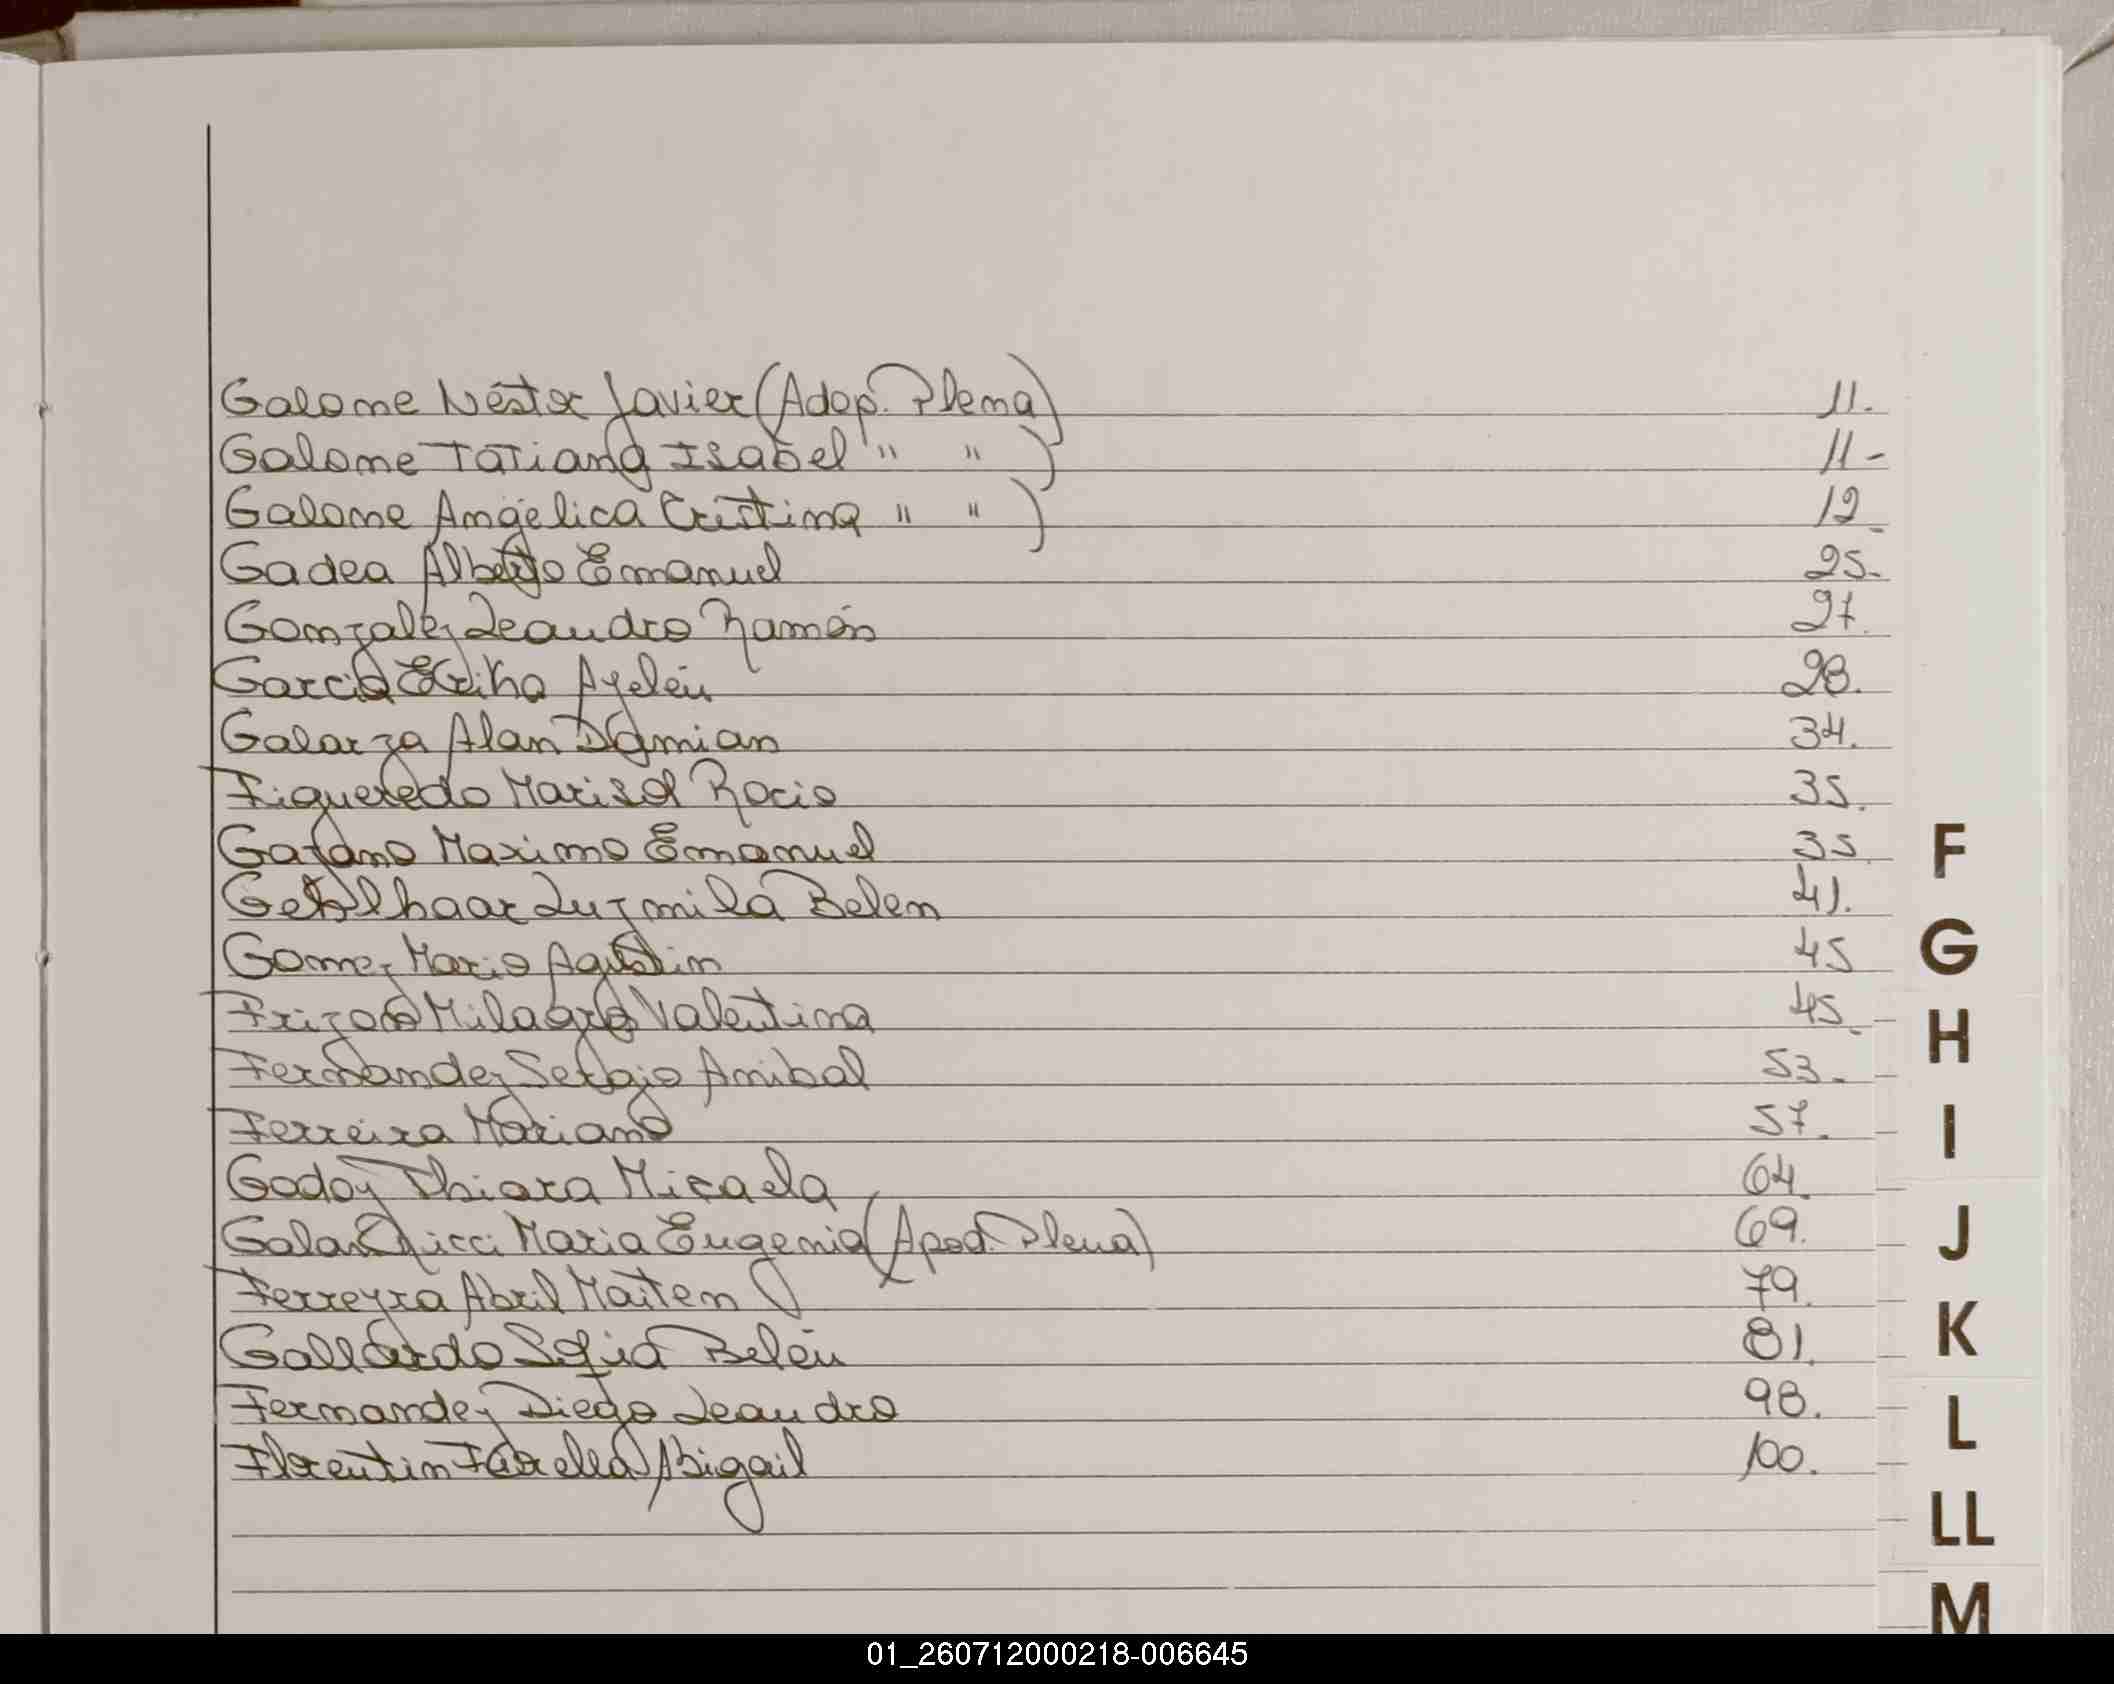 Galome Néstor Javier (Adop. Plena) 11.
Galome Tatiana Isabel " " ) 11-
Galome Angélica Cristina " " ) 12-
Gadea Alberto Emanuel 25-
Gonzalez Leandro Ramón 27.
Garcia Erika Ayelén 28.
Galarza Alan Damian 34.
Figueredo Marisol Rocio 35.
Maximo Emanuel 35.
Luzmila Belen 41.
Gomez Mario Agustin 45
Milagro Valentina 45-
Fernandez Sergio Anibal 53.
Ferreira Mariano 57.
Godoy Thiara Micaela 64.
Maria Eugenia (Apod. Plena) 69.
Ferreyra Abril Maiten 79.
Gallardo Sofia Belén 81.
Fernandez Diego Leandro 98.
Florentin Abigail 100.
F
G
H
I
J
K
L
LL
M
01_260712000218-006645